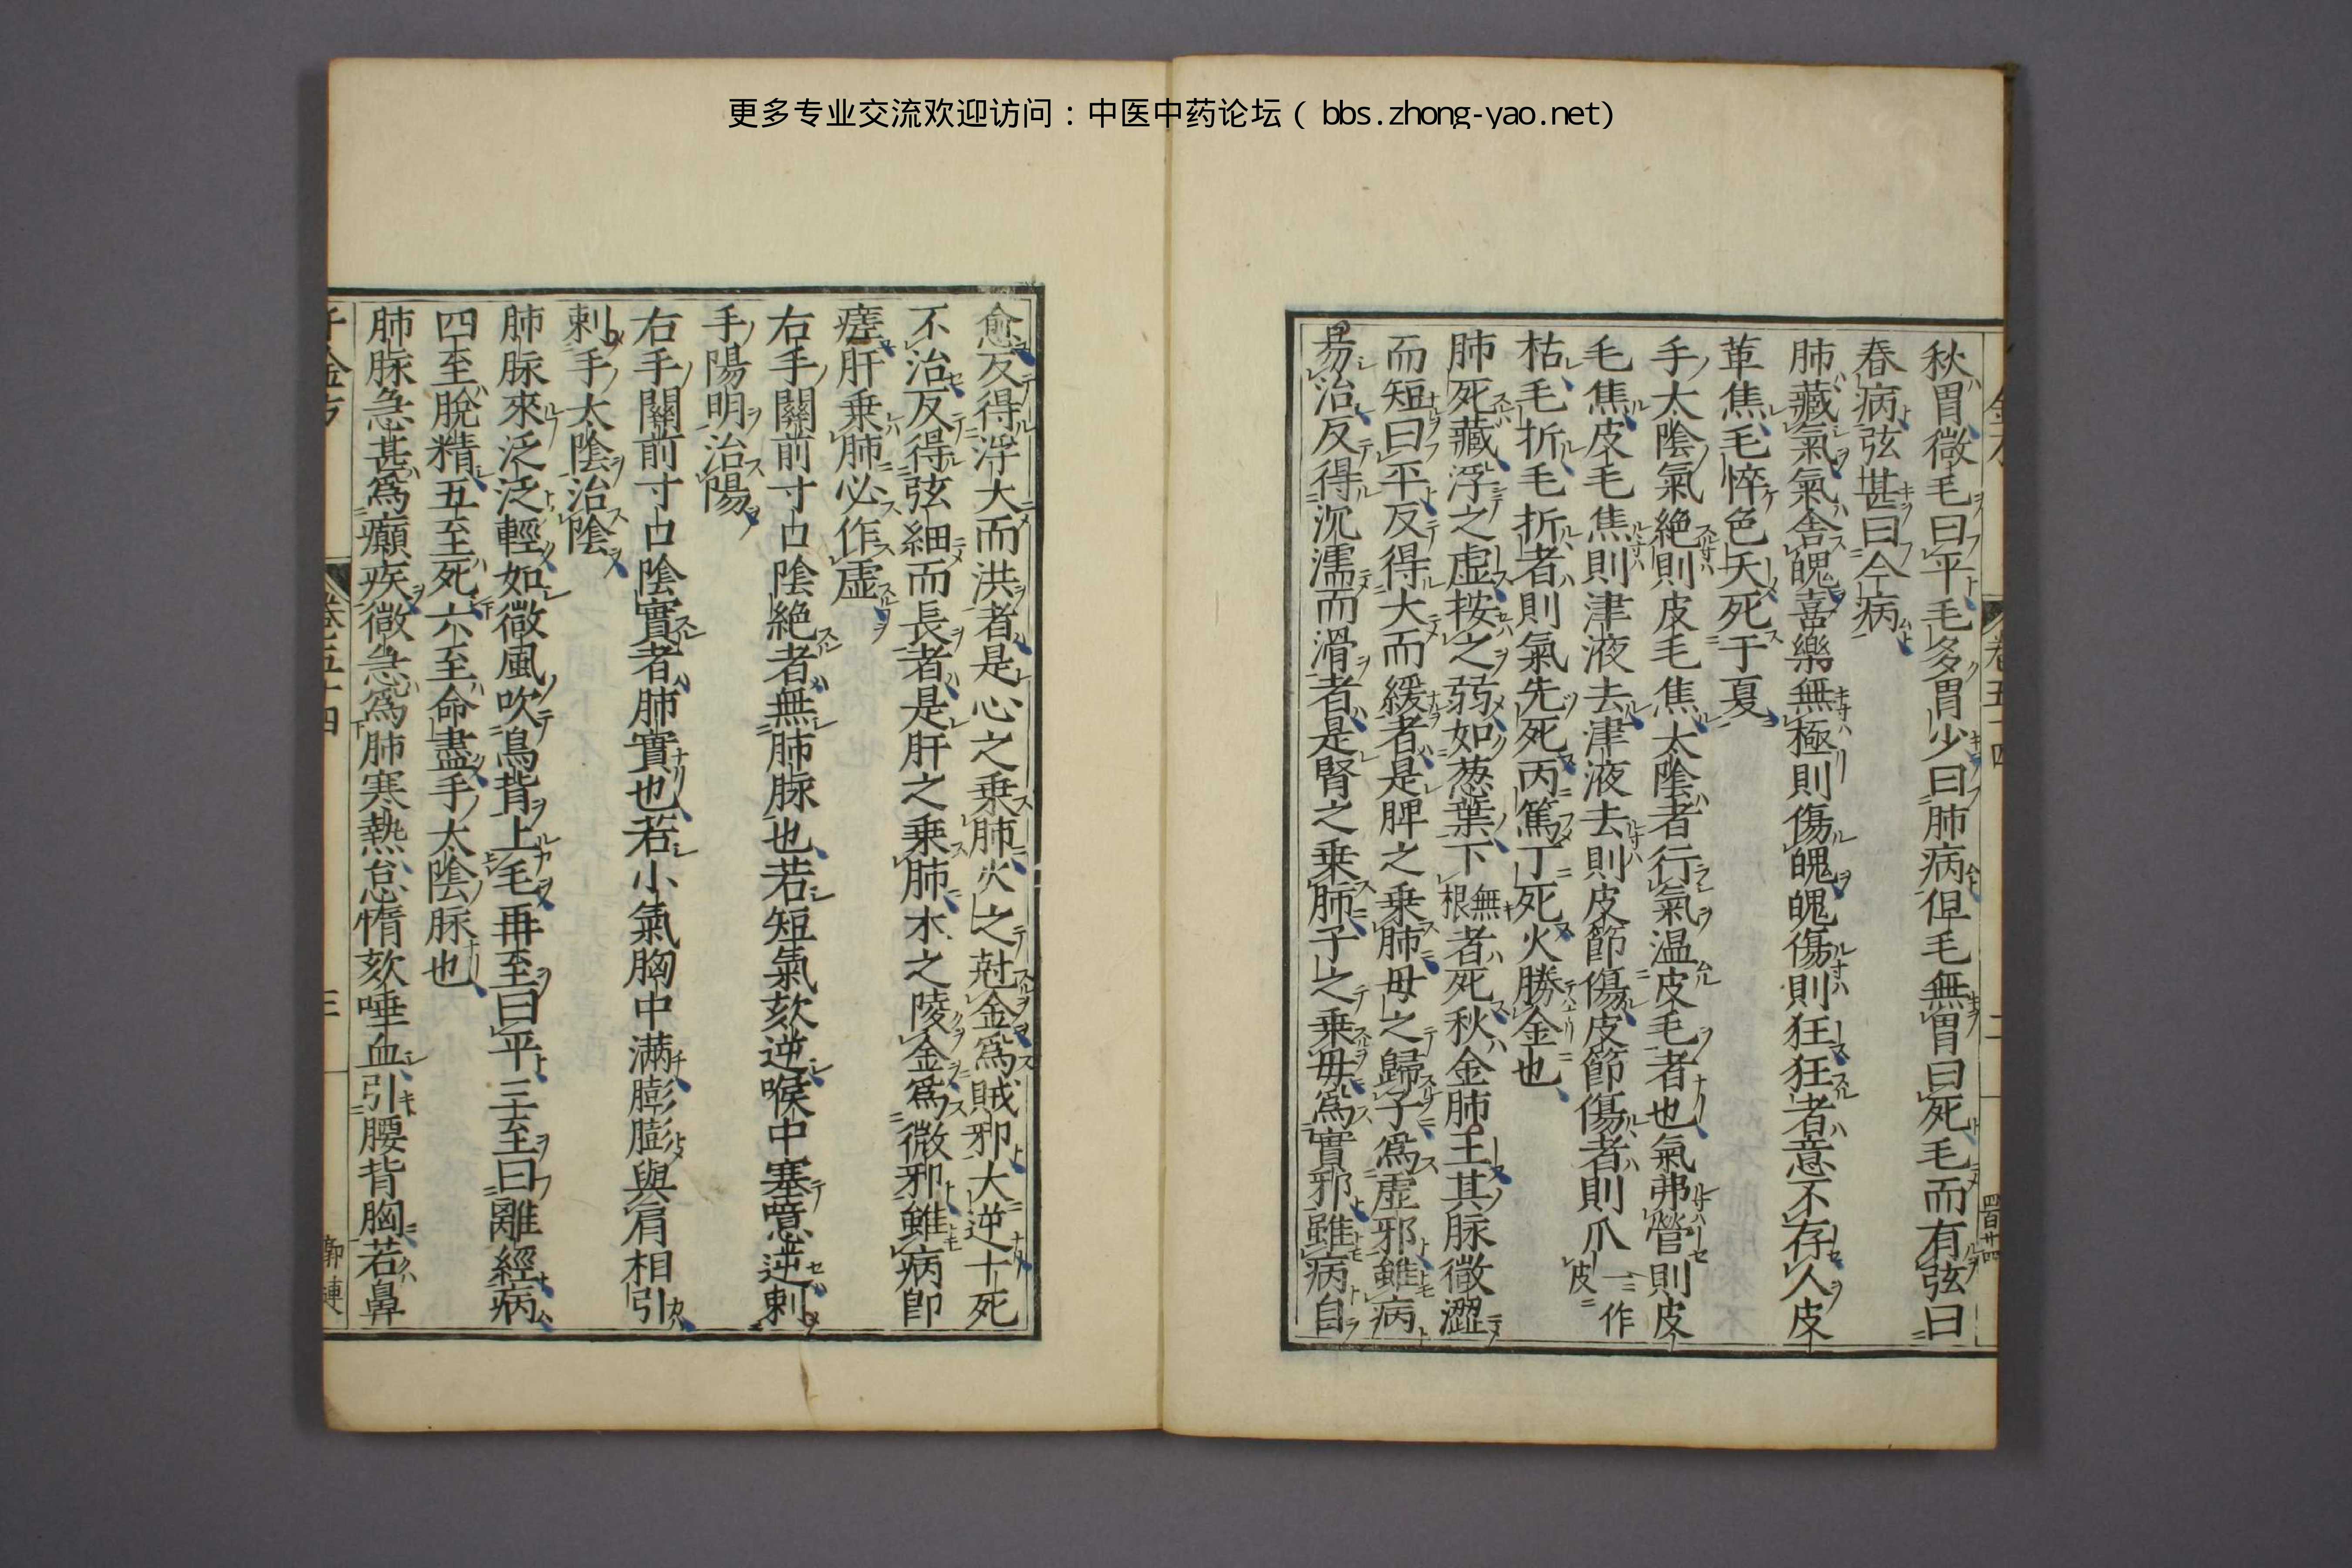 更多专业交流欢迎访问：中医中药论坛（bbs.zhong-yao.net）
秋胃微毛曰平毛多胃少曰肺病但毛無胃曰死毛而有弦曰
春病弦甚曰今病
肺藏氣氣舍魄喜樂無極則傷魄魄傷則狂狂者意不存人皮
革焦毛悴色夭死于夏
手太陰氣絶則皮毛焦太陰者行氣温皮毛者也氣弗營則皮
毛焦皮毛焦則津液去津液去則皮節傷皮節傷者則爪一作皮
枯毛折毛折者則氣先死丙篤丁死火勝金也
肺死藏浮之虚按之弱如葱葉下無根者死秋金肺王其脉微澀
而短曰平反得大而緩者是脾之乗肺母之歸子爲虚邪雖病
易治反得沉濡而滑者是腎之乗肺子之乗母爲實邪雖病自
愈反得浮大而洪者是心之乗肺火之尅金爲賊邪大逆十死
不治反得弦細而長者是肝之乗肺木之陵金爲微邪雖病即
瘥肝乗肺必作虚
右手關前寸口陰絶者無肺脉也若短氣欬逆喉中塞噫逆刺
手陽明治陽
右手關前寸口陰實者肺實也若小氣胸中滿膨膨與肩相引
刺手太陰治陰
肺脉來泛泛輕如微風吹鳥背上毛再至曰平三至曰離經病
四至脫精五至死六至命盡手太陰脉也
肺脉急甚爲癲疾微急爲肺寒熱怠惰欬唾血引腰背胸若鼻
千金方 卷五十四 三